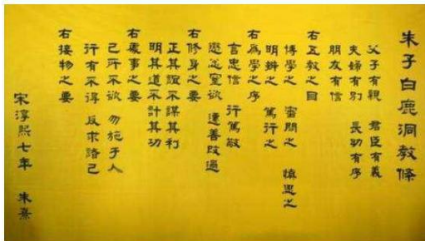 朱子白鹿洞教條
父子有親 君臣有義
夫婦有別 長幼有序
朋友有信
右五教之目
博學之 審問之 慎思之
明辨之 篤行之
右為學之序
言忠信 行篤敬
懲忿窒欲 遷善改過
右修身之要
正其誼不謀其利
明其道不計其功
右處事之要
己所不欲 勿施于人
行有不得 反求諸己
右接物之要
宋淳熙七年 朱熹